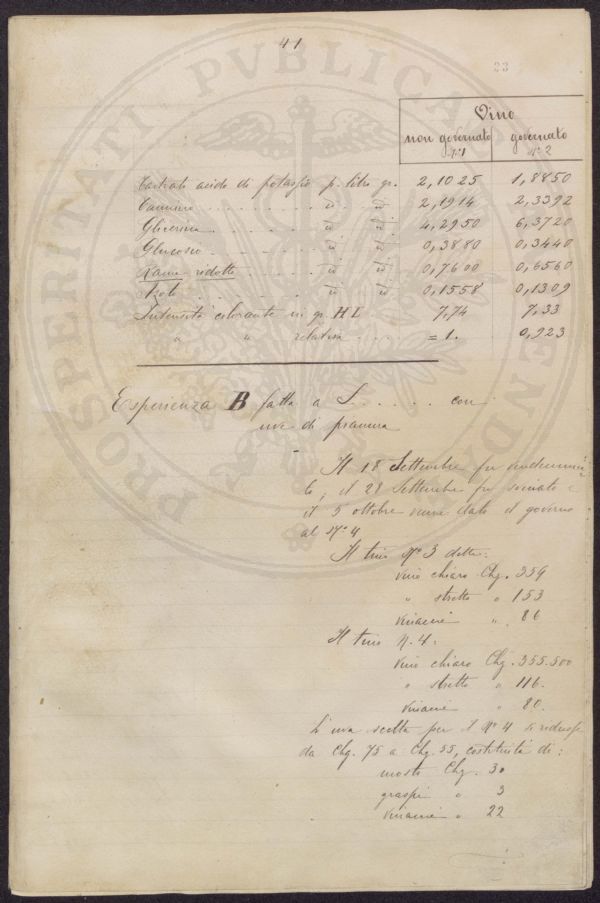 41
23
Vino
non governato governato
N°1 N° 2
Tartrato acido di potassio p. litro gr. 2,1025 1,8850
Tannino id id 2,1914 2,3392
Glicerina id id 4,2950 6,3720
Glucosio id id 0,3880 0,3440
Rame ridotto id id 0,7600 0,6560
Azoto id id 0,1558 0,1309
Intensità colorante in gr. H I 7,74 7,33
" " relativa = 1. 0,923
Esperienza B fatta a S . . . . . con
uve di pianura
Il 18 Settembre fu vendemmia-
to, il 28 Settembre fu svinato e
il 5 ottobre venne dato il governo
al N° 4
Il tino N° 3 dette:
vino chiaro Chg. 359
" stretto " 153
vinacce " 86
Il tino N. 4:
vino chiaro Chg. 355.500
" stretto " 116.
vinacce " 80.
L'uva scelta per il N° 4 si ridusse
da Chg. 75 a Chg. 55, costituiti di:
mosto Chg. 30
graspi " 3
vinacce " 22
PROSPERITATI PVBLICAE AVGENDAE